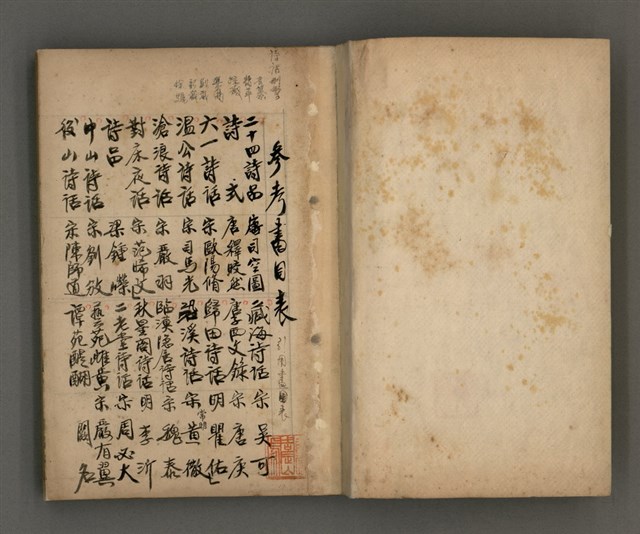 參考書目表
二十四詩品 唐司空圖 藏海詩話 宋 吳可
詩式 唐釋皎然 唐子西文錄 宋 唐庚
六一詩話 宋歐陽脩 歸田詩話 明 瞿佑
溫公詩話 宋司馬光 䂬溪詩話 宋 黃徹
滄浪詩話 宋嚴羽 臨漢隱居詩話 宋 魏泰
對床夜話 宋范晞文 秋星閣詩話 明 李沂
詩品 梁鍾嶸 二老堂詩話 宋 周必大
中山詩話 宋劉攽 藝苑雌黃 宋 嚴有翼
後山詩話 宋陳師道 譚苑醍醐 闕名